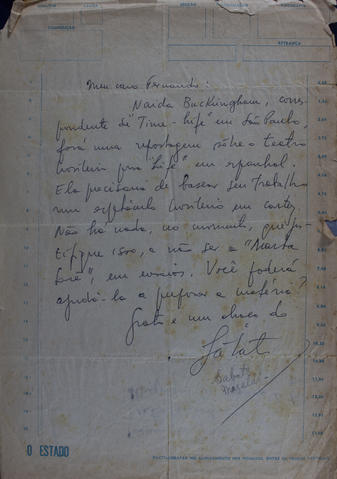 RETRANCA
Meu caro Fernando:
Naida Buckingham, corres-
pondente de "Time-Life" em São Paulo,
fará uma reportagem sôbre o teatro
brasileiro para "Life" em espanhol.
Ela precisaria de basear seu trabalho
num espetáculo brasileiro em cartaz.
Não há nada, no momento, que jus-
tifique isso, a não ser a "Marta
Saré", em ensaios. Você poderá
ajudá-la a preparar a matéria?
Grato e um abraço do
Sábato
Sabato
Magaldi
O ESTADO